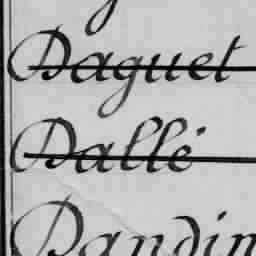 Daguet
Dallé
Dandin